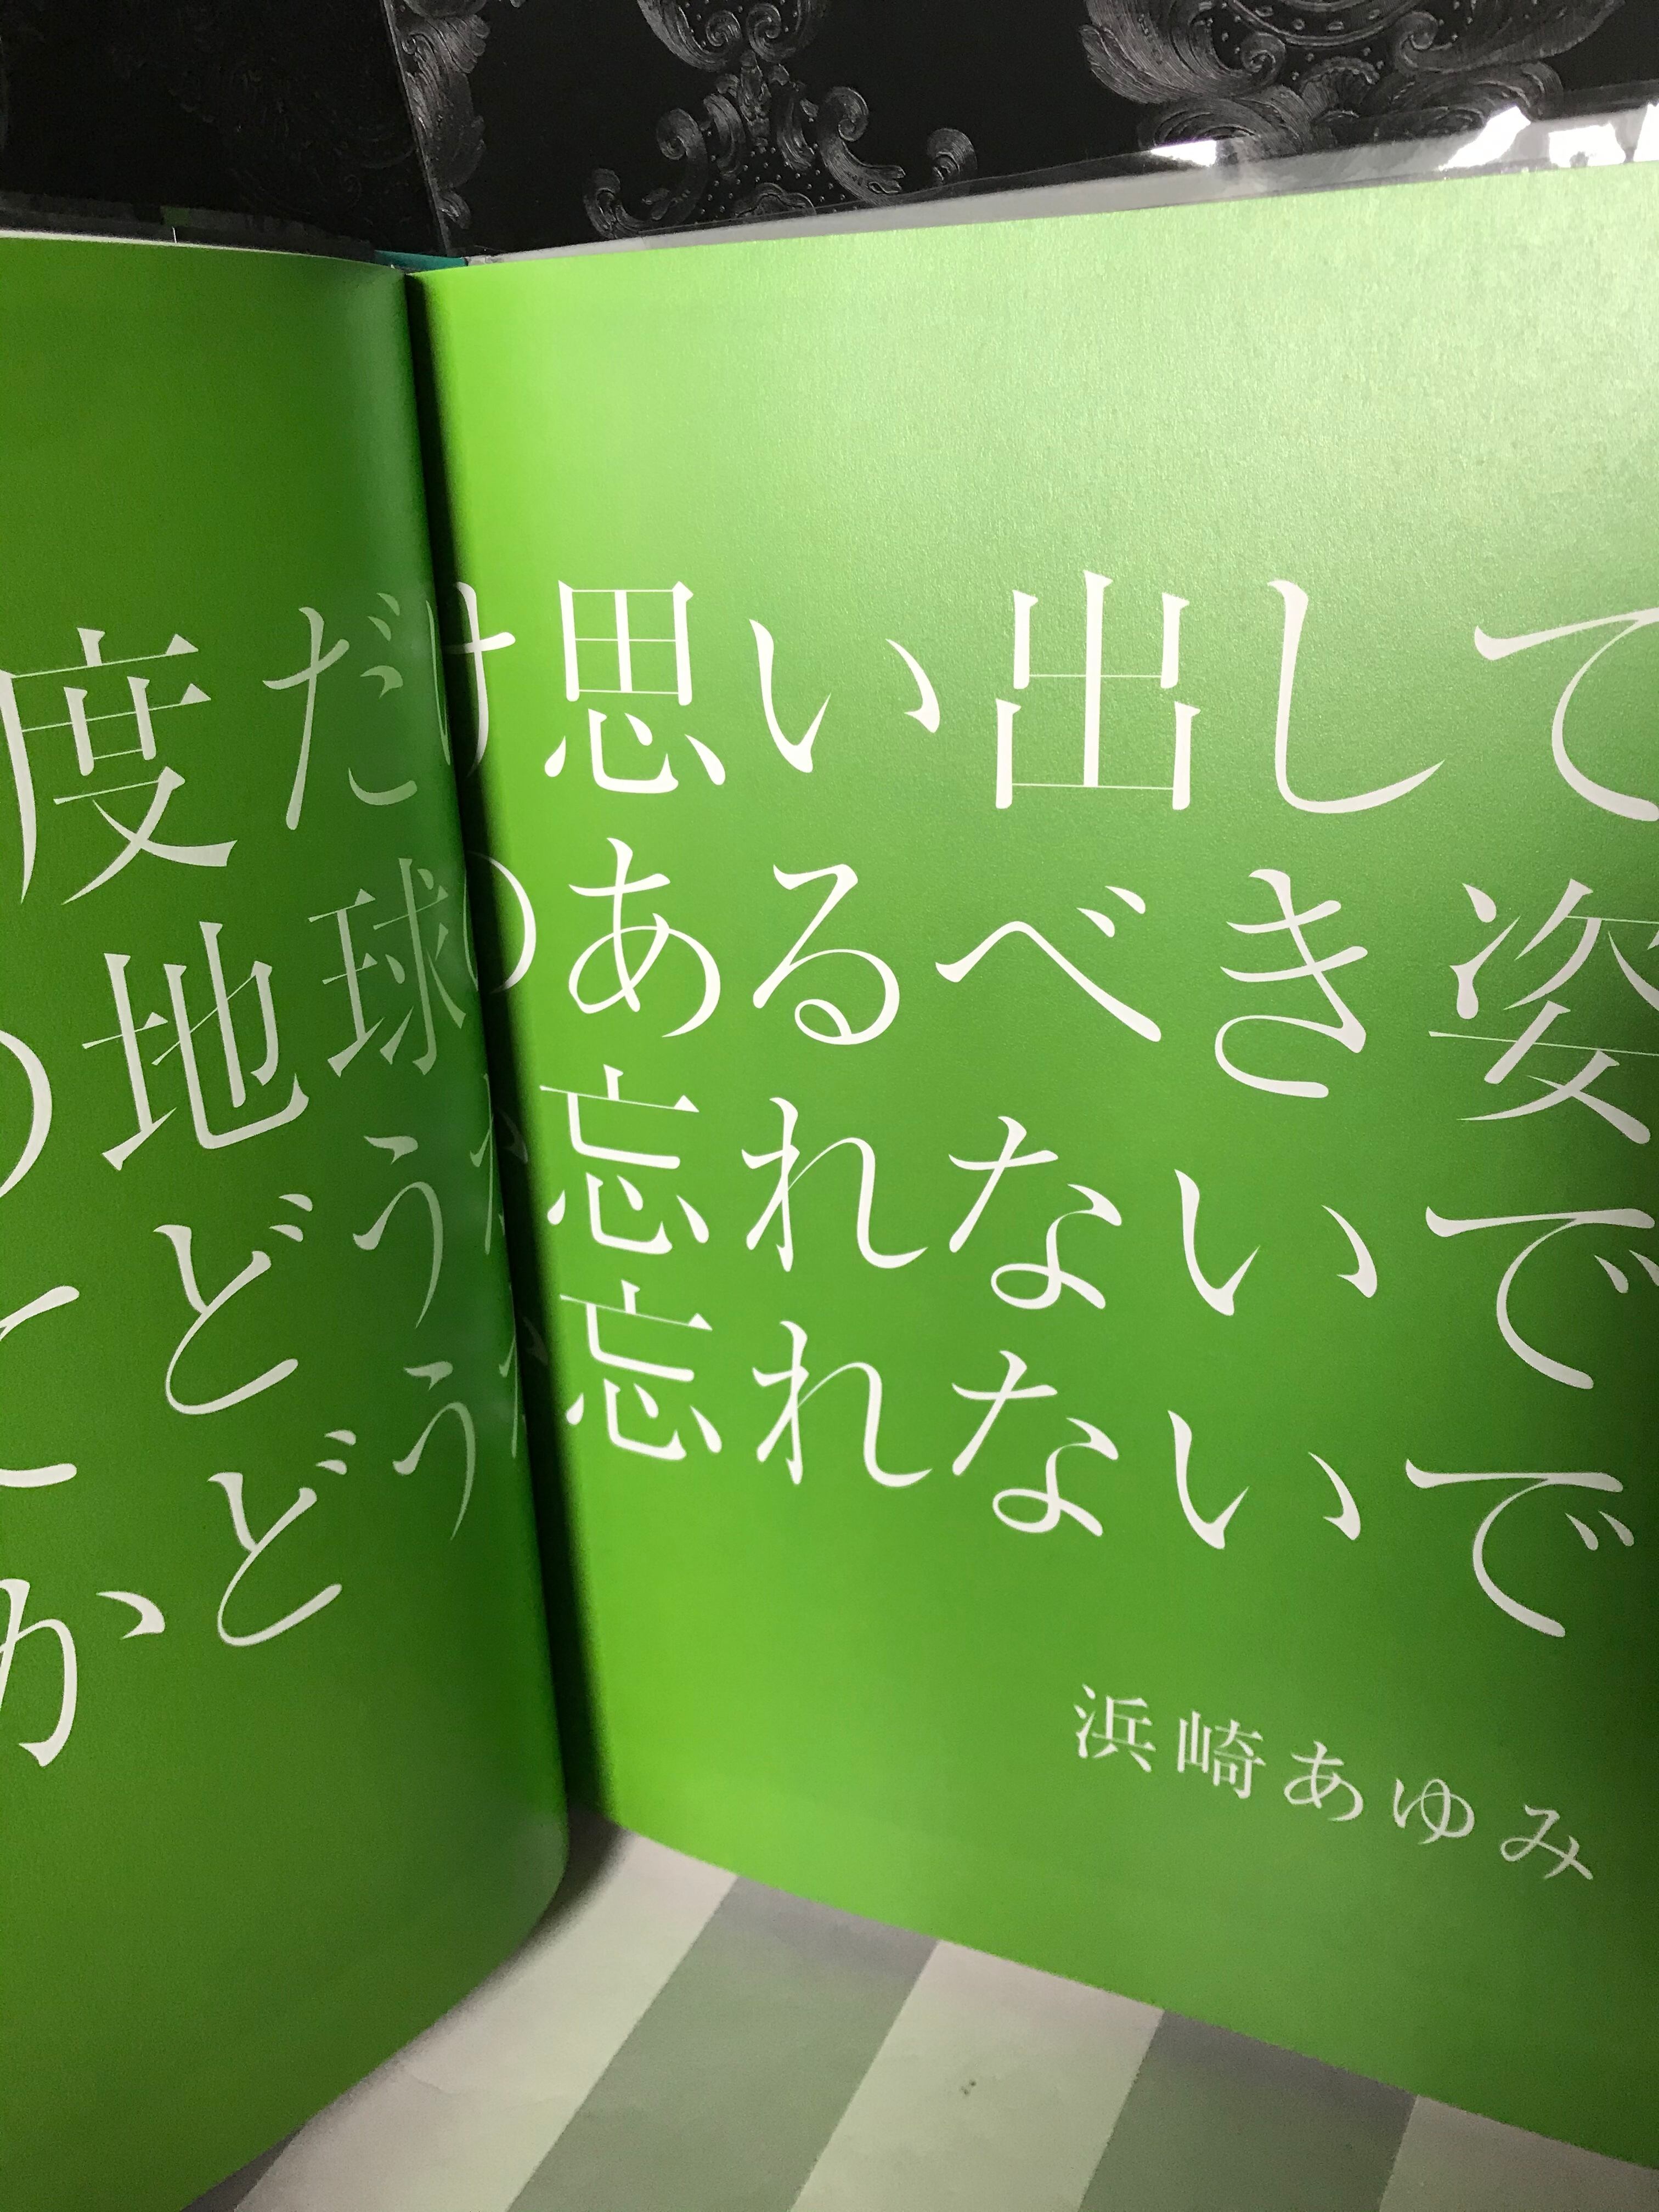 度だけ思い出して
の地球のあるべき姿
どうか忘れないで
かどうか忘れないで
浜崎あゆみ